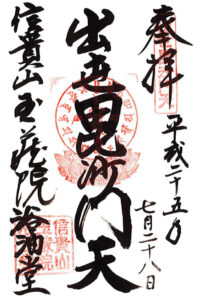 奉拝
平成二十五年
七月二十八日
出世毘沙門天
信貴山玉蔵院浴油堂